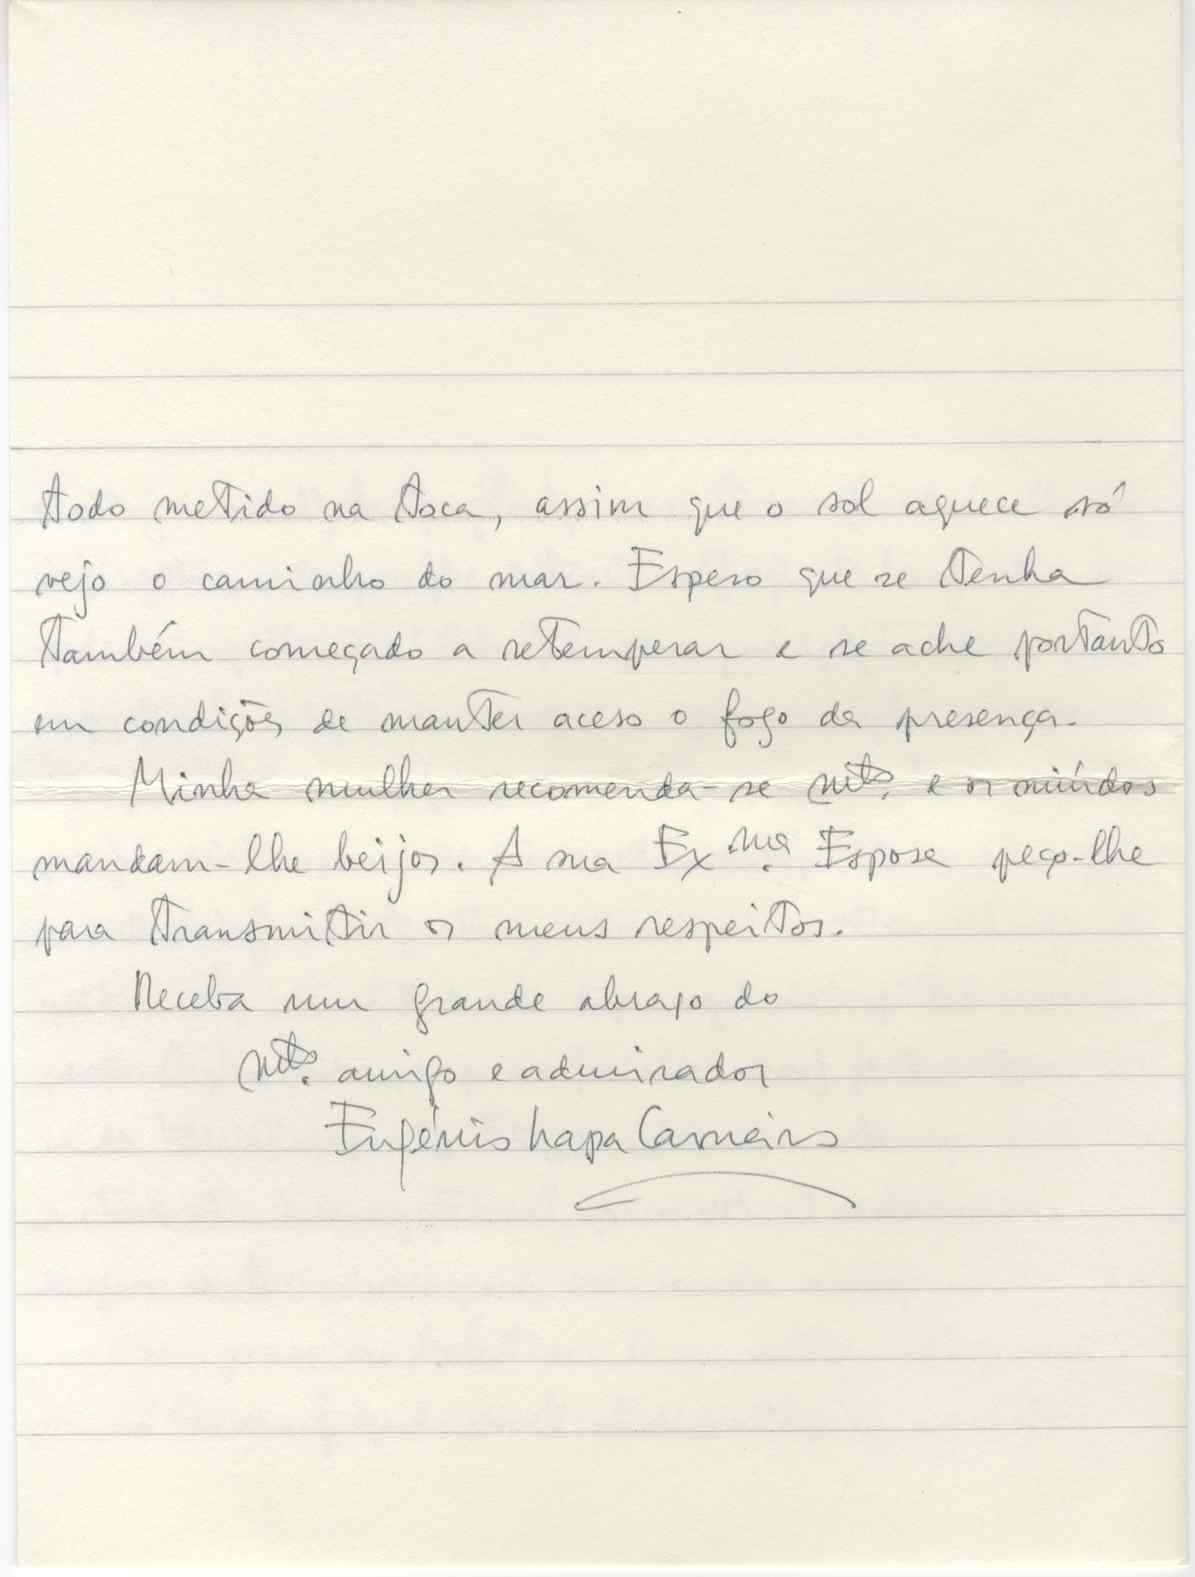 todo metido na toca, assim que o sol aquece só
vejo o caminho do mar. Espero que se tenha
também começado a retemperar e se ache portanto
em condições de manter aceso o fogo da presença.
Minha mulher recomenda-se mto. e os miúdos
mandam-lhe beijos. A sua Exma. Esposa peço-lhe
para transmitir os meus respeitos.
Receba um grande abraço do
mto. amigo e admirador
Eugénio Lapa Carneiro